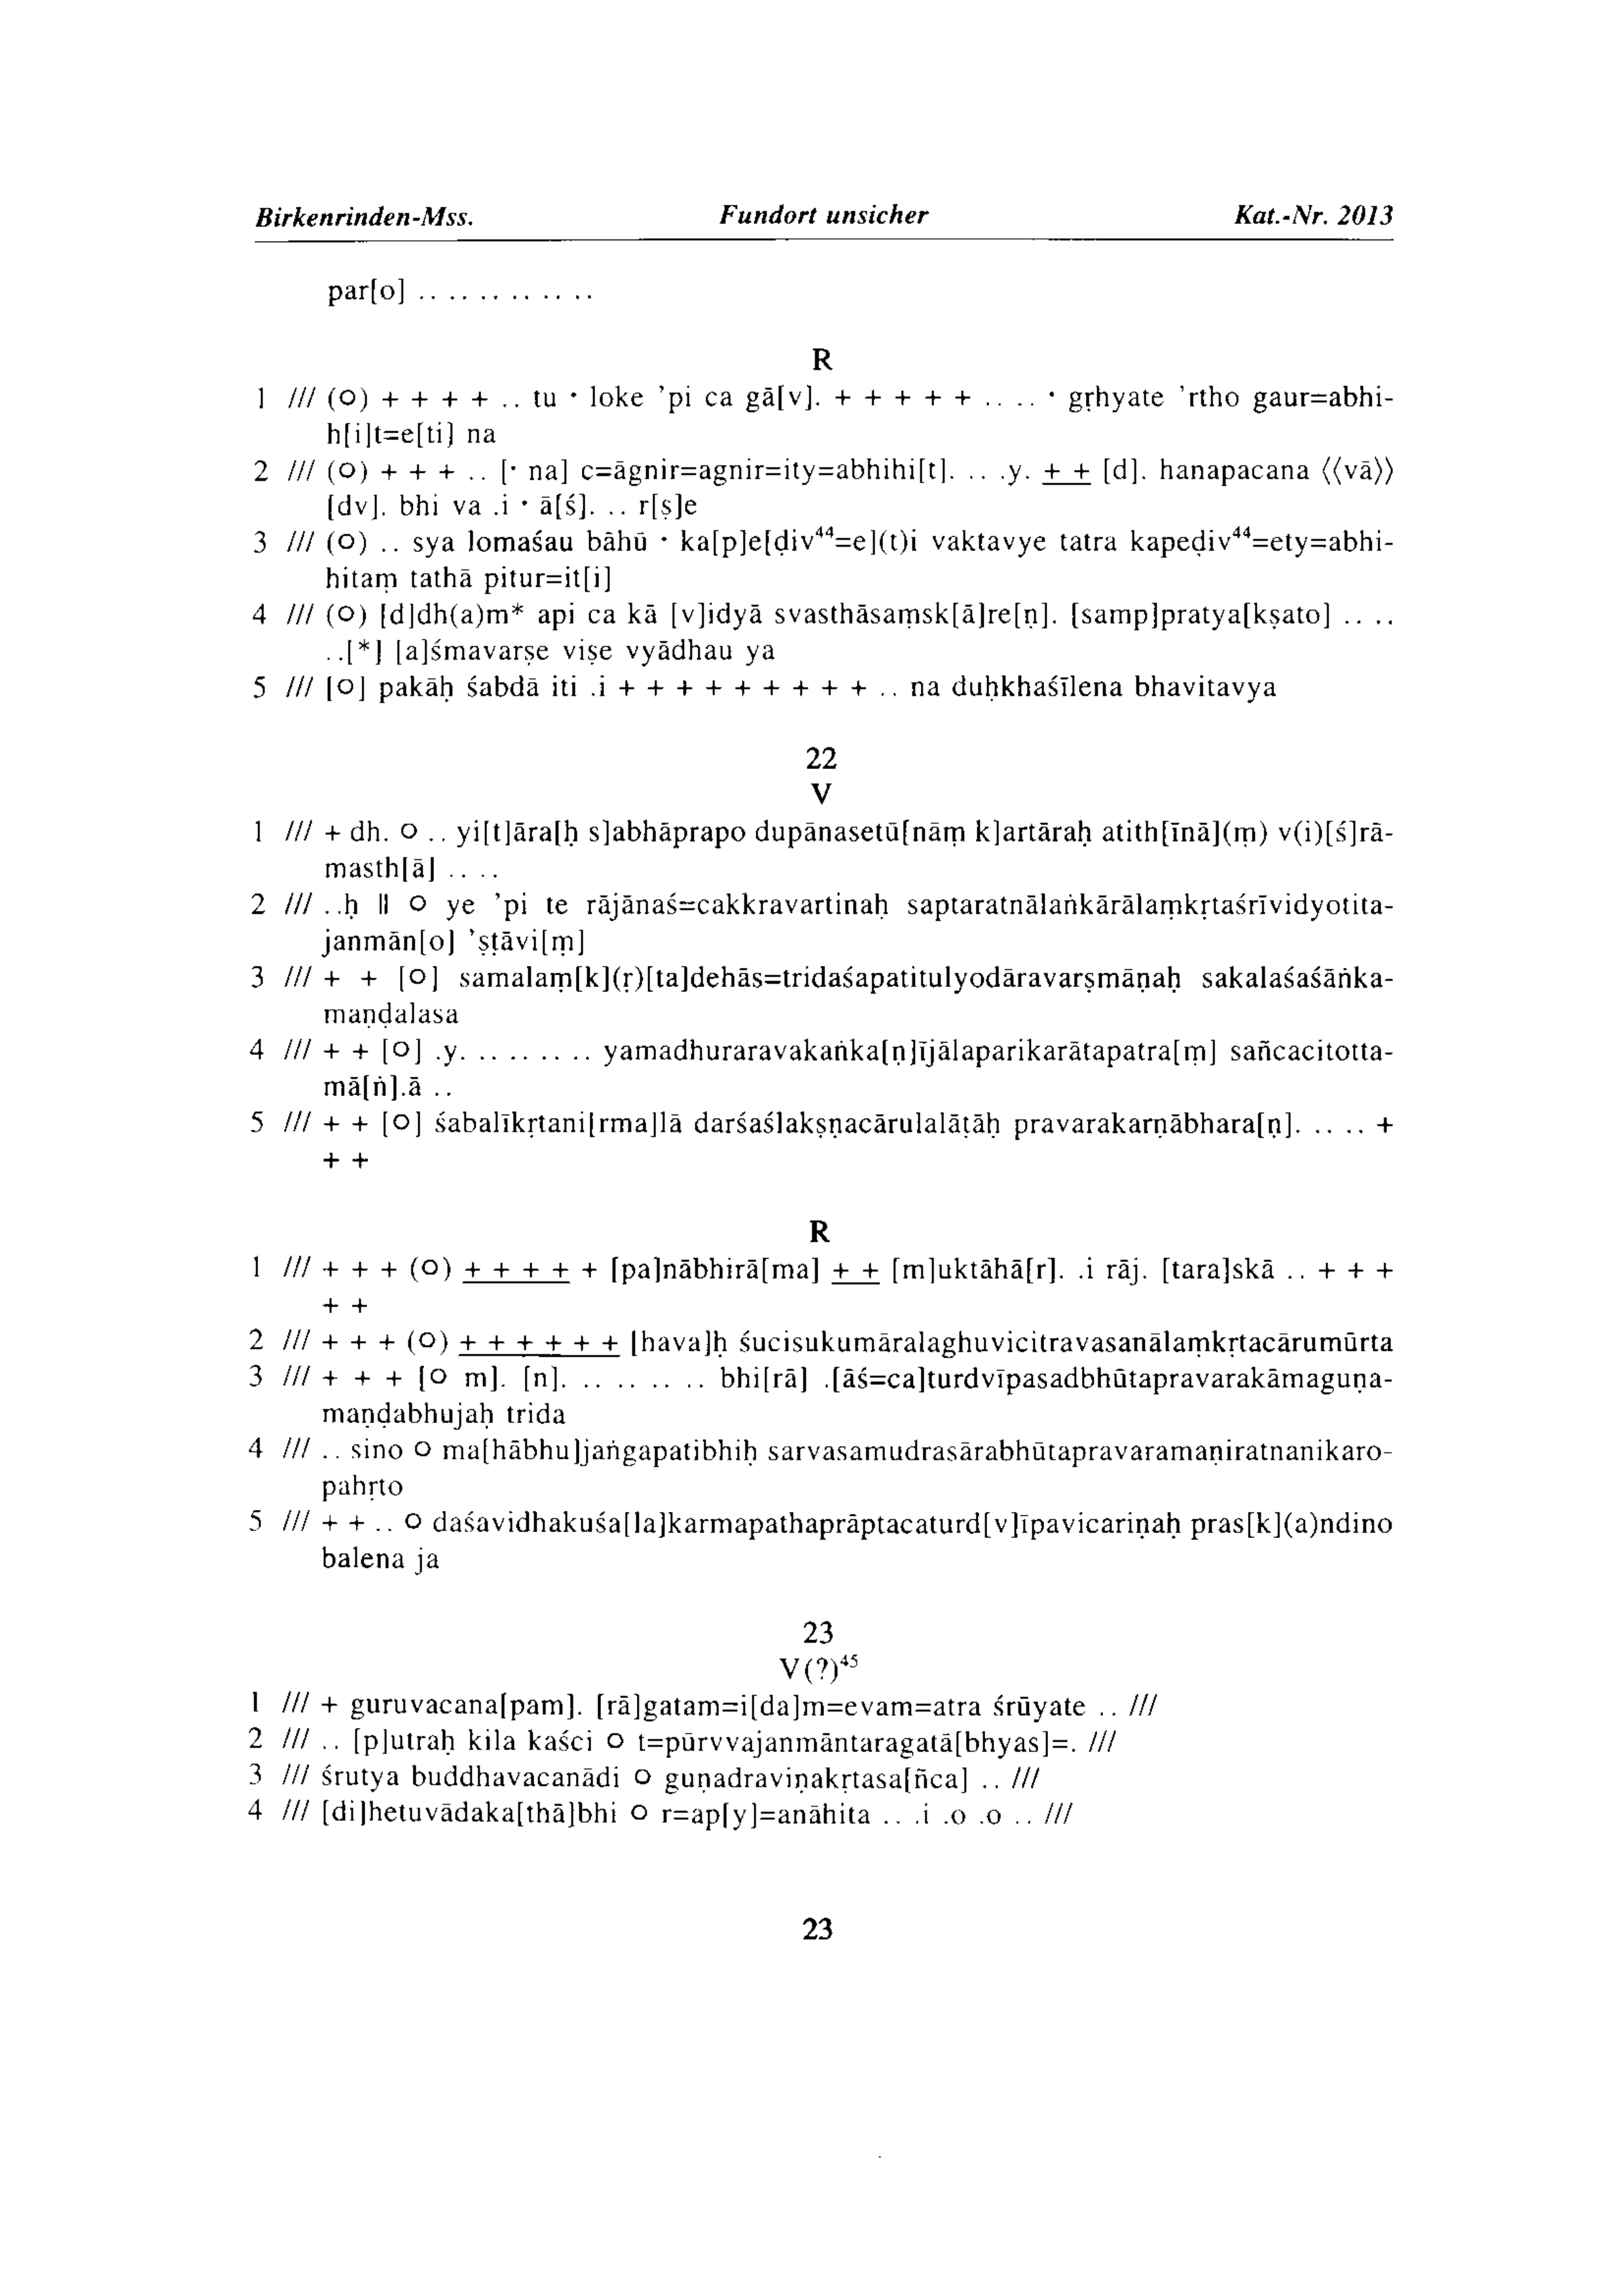 Birkenrinden-Mss. Fundort unsicher Kat.-Nr. 2013
par[o] .. .. .. .. .. ..
R
1 /// (○) + + + + .. tu · loke ’pi ca gā[v]. + + + + + .. .. · gṛhyate ’rtho gaur=abhi-
h[i]t=e[ti] na
2 /// (○) + + + .. [· na] c=āgnir=agnir=ity=abhihi[t]. .. .y. + + [d]. hanapacana ⟨⟨vā⟩⟩
[dv]. bhi va .i · ā[ś]. .. r[ṣ]e
3 /// (○) .. sya lomaśau bāhū · ka[p]e[ḍiv⁴⁴=e](t)i vaktavye tatra kapeḍiv⁴⁴=ety=abhi-
hitaṃ tathā pitur=it[i]
4 /// (○) [d]dh(a)m* api ca kā [v]idyā svasthāsaṃsk[ā]re[ṇ]. [samp]pratya[kṣato] .. ..
..[*] [a]śmavarṣe viṣe vyādhau ya
5 /// [○] pakāḥ śabdā iti .i + + + + + + + + + .. na duḥkhaśīlena bhavitavya
22
V
1 /// + dh. ○ .. yi[t]āra[ḥ s]abhāprapo dupānasetū[nāṃ k]artāraḥ atith[īnā](ṃ) v(i)[ś]rā-
masth[ā] .. ..
2 /// ..ḥ || ○ ye ’pi te rājānaś=cakkravartinaḥ saptaratnālaṅkārālaṃkṛtaśrīvidyotita-
janmān[o] ’ṣṭāvi[ṃ]
3 /// + + [○] samalaṃ[k](ṛ)[ta]dehās=tridaśapatitulyodāravarṣmāṇaḥ sakalaśaśāṅka-
maṇḍalasa
4 /// + + [○] .y. .. .. .. .. yamadhuraravakaṅka[ṇ]ījālaparikarātapatra[ṃ] sañcacitotta-
mā[ṅ].ā ..
5 /// + + [○] śabalīkṛtani[rma]lā darśaślakṣṇacārulalāṭāḥ pravarakarṇābhara[ṇ]. .. .. +
+ +
R
1 /// + + + (○) + + + + + [pa]nābhirā[ma] + + [m]uktāhā[r]. .i rāj. [tara]skā .. + + +
+ +
2 /// + + + (○) + + + + + + [hava]ḥ śucisukumāralaghuvicitravasanālaṃkṛtacārumūrta
3 /// + + + [○ m]. [n]. .. .. .. .. .. bhi[rā] .[āś=ca]turdvīpasadbhūtapravarakāmaguṇa-
maṇḍabhujaḥ trida
4 /// .. sino ○ ma[hābhu]jaṅgapatibhiḥ sarvasamudrasārabhūtapravaramaṇiratnanikaro-
pahṛto
5 /// + + .. ○ daśavidhakuśa[la]karmapathaprāptacaturd[v]īpavicariṇaḥ pras[k](a)ndino
balena ja
23
V(?)⁴⁵
1 /// + guruvacana[pam]. [rā]gatam=i[da]m=evam=atra śrūyate .. ///
2 /// .. [p]utraḥ kila kaści ○ t=pūrvvajanmāntaragatā[bhyas]=. ///
3 /// śrutya buddhavacanādi ○ guṇadraviṇakṛtasa[ñca] .. ///
4 /// [di]hetuvādaka[thā]bhi ○ r=ap[y]=anāhita .. .i .o .o .. ///
23